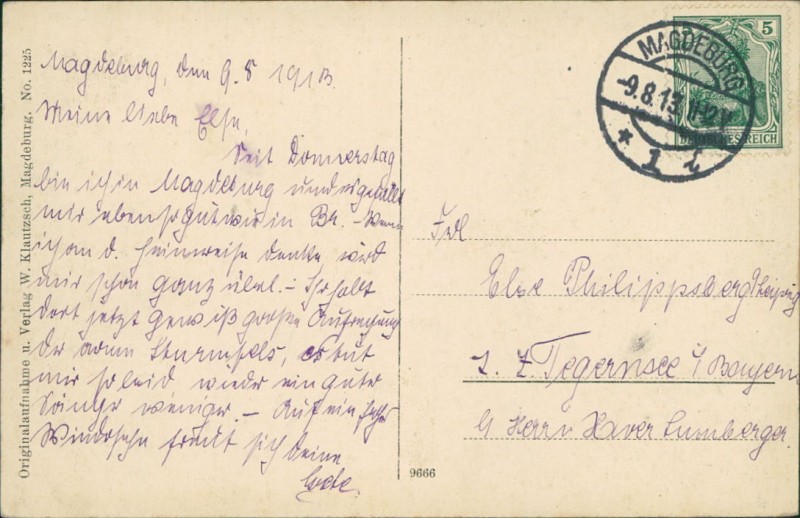 Magdeburg, den 9. 8. 1913.
Meine liebe Else,
Seit Donnerstag
bin ich in Magdeburg und es gefällt
mir ebenso gut wie in Br. – Wenn
ich an d. Heimreise denke wird
mir schon ganz übel. – Ihr habt
dort jetzt gewiß großen Aufregung
der arme Sturmfels, es tut
mir so leid wieder ein guter
Sänger weniger – Auf ein frohes
Wiedersehn freut sich Deine
Originalaufnahme u. Verlag W. Klautzsch, Magdeburg. No. 1225
9666
MAGDEBURG
-9.8.13.11-12V
* 1 i
5
DEUTSCHES REICH
Frl
Else Philippsberg Leipzig
z. Z. Tegernsee i/ Bayern
b/ Herrn Xaver Lumberger.